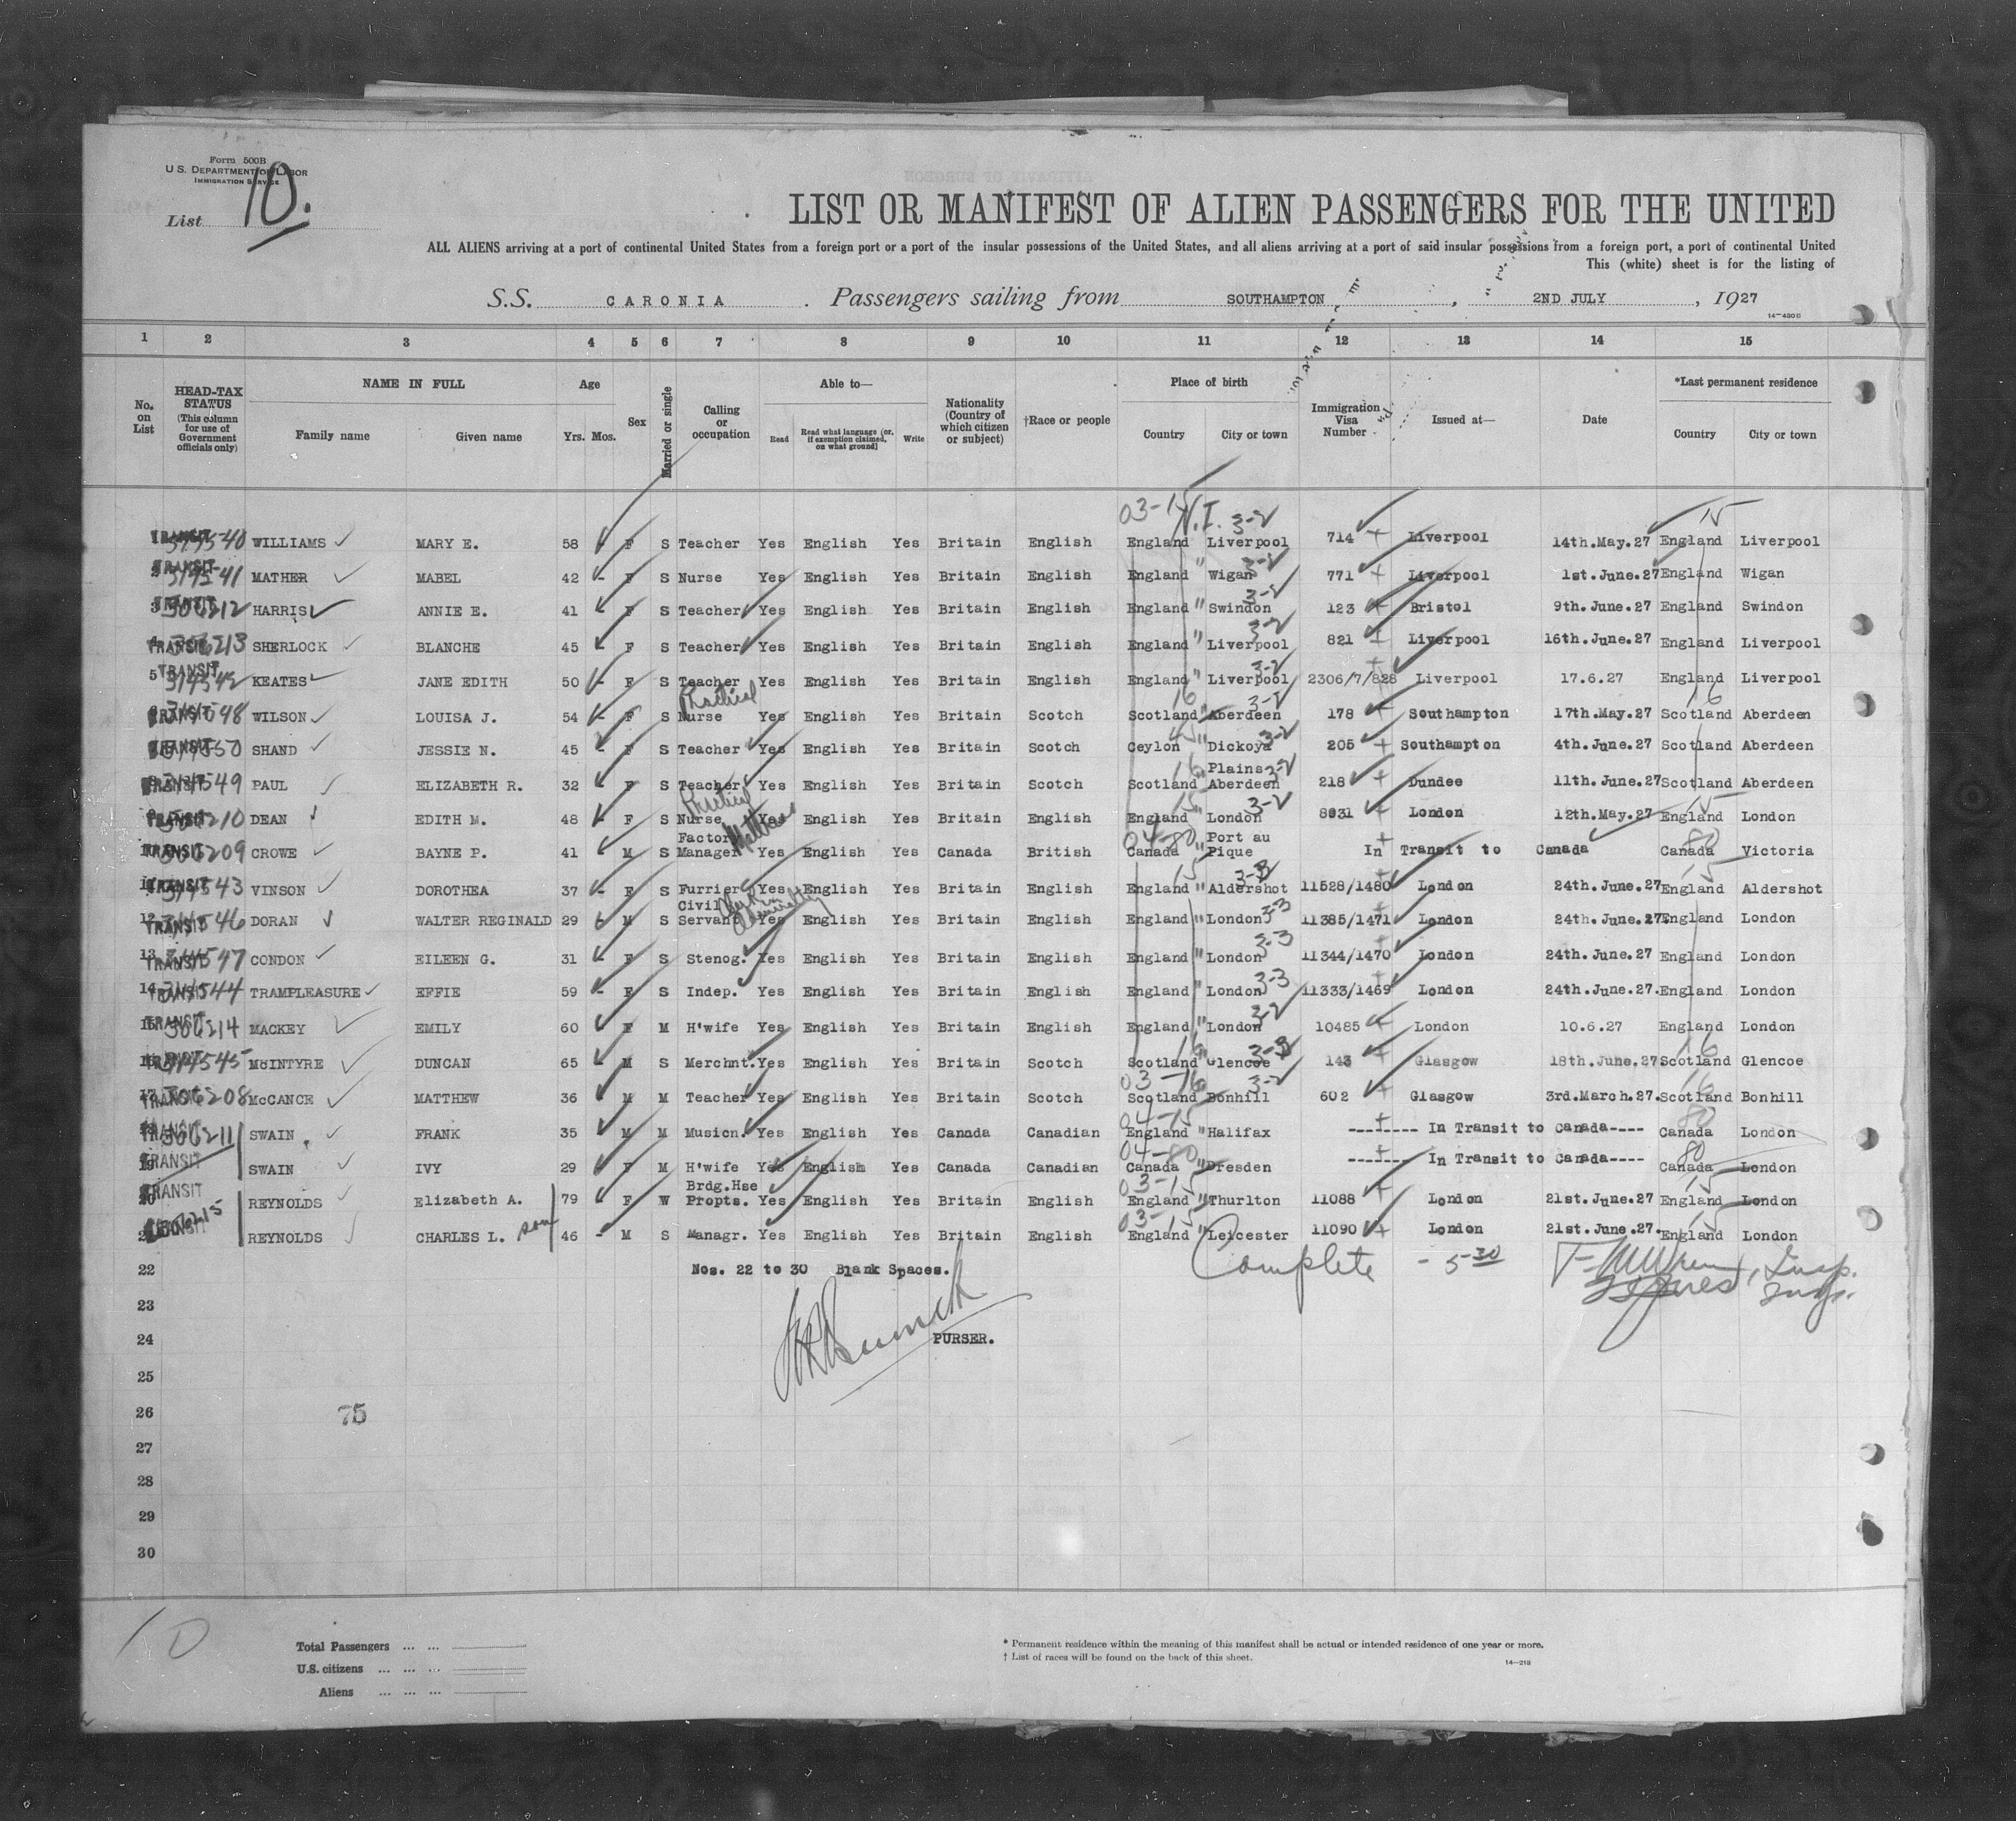 Form 500B
U. S. DEPARTMENT OF LABOR
IMMIGRATION SERVICE
List 10.
LIST OR MANIFEST OF ALIEN PASSENGERS FOR THE UNITED
ALL ALIENS arriving at a port of continental United States from a foreign port or a port of the insular possessions of the United States, and all aliens arriving at a port of said insular possessions from a foreign port, a port of continental United
This (white) sheet is for the listing of
S.S. CARONIA . Passengers sailing from SOUTHAMPTON , 2ND JULY , 1927
1 2 3 4 5 6 7 8 9 10 11 12 13 14 15
No. on List
HEAD-TAX STATUS (This column for use of Government officials only)
NAME IN FULL
Family name Given name
Age
Yrs. Mos.
Sex
Married or single
Calling or occupation
Able to—
Read Read what language (or, if exemption claimed, on what ground) Write
Nationality (Country of which citizen or subject)
†Race or people
Place of birth
Country City or town
Immigration Visa Number
Issued at—
Date
*Last permanent residence
Country City or town
03-15 N.I. 3-2 15
TRANSIT WILLIAMS MARY E. 58 - F S Teacher Yes English Yes Britain English England Liverpool 714 Liverpool 14th.May.27 England Liverpool
TRANSIT MATHER MABEL 42 - F S Nurse Yes English Yes Britain English England " Wigan 3-2 771 Liverpool 1st.June.27 England Wigan
3 306212 HARRIS ANNIE E. 41 F S Teacher Yes English Yes Britain English England " Swindon 3-2 123 Bristol 9th.June.27 England Swindon
TRANSIT 306213 SHERLOCK BLANCHE 45 - F S Teacher Yes English Yes Britain English England " Liverpool 3-2 821 Liverpool 16th.June.27 England Liverpool
5 TRANSIT 314542 KEATES JANE EDITH 50 - F S Teacher Yes English Yes Britain English England " Liverpool 3-2 2306/7/828 Liverpool 17.6.27 England Liverpool
Practical 16 3-2 16
TRANSIT WILSON LOUISA J. 54 - F S Nurse Yes English Yes Britain Scotch Scotland " Aberdeen 178 Southampton 17th.May.27 Scotland Aberdeen
TRANSIT SHAND JESSIE N. 45 - F S Teacher Yes English Yes Britain Scotch Ceylon " Dickoya 3-2 205 Southampton 4th.June.27 Scotland Aberdeen
Plains
TRANSIT PAUL ELIZABETH R. 32 F S Teacher Yes English Yes Britain Scotch Scotland " Aberdeen 3-2 218 Dundee 11th.June.27 Scotland Aberdeen
Practical 15 3-2 15
TRANSIT 306210 DEAN EDITH M. 48 - F S Nurse Yes English Yes Britain English England " London 8931 London 12th.May.27 England London
Factory 04-80 Port au 80
10 306209 CROWE BAYNE P. 41 M S Manager Yes English Yes Canada British Canada " Pique In Transit to Canada Canada Victoria
TRANSIT 314543 VINSON DOROTHEA 37 - F S Furrier Yes English Yes Britain English England " Aldershot 3-3 11528/1480 London 24th.June.27 England Aldershot
Civil Clerk in Admiralty
12 TRANSIT 314546 DORAN WALTER REGINALD 29 M S Servant Yes English Yes Britain English England " London 3-3 11385/1471 London 24th.June.27 England London
13 TRANSIT 314547 CONDON EILEEN G. 31 - F S Stenog. Yes English Yes Britain English England " London 3-3 11344/1470 London 24th.June.27 England London
14 TRANSIT 314544 TRAMPLEASURE EFFIE 59 - F S Indep. Yes English Yes Britain English England " London 3-3 11333/1469 London 24th.June.27. England London
15 TRANSIT 306214 MACKEY EMILY 60 F M H'wife Yes English Yes Britain English England " London 3-2 10485 London 10.6.27 England London
16 314545 McINTYRE DUNCAN 65 - M S Merchnt. Yes English Yes Britain Scotch Scotland " Glencoe 3-3 143 Glasgow 18th.June.27 Scotland Glencoe
03-16 3-2 16
17 TRANSIT 306208 McCANCE MATTHEW 36 M M Teacher Yes English Yes Britain Scotch Scotland Bonhill 602 Glasgow 3rd.March.27. Scotland Bonhill
04-15 80
18 306211 SWAIN FRANK 35 M M Musicn. Yes English Yes Canada Canadian England " Halifax -------- In Transit to Canada---- Canada London
04-80 80
19 TRANSIT SWAIN IVY 29 F M H'wife Yes English Yes Canada Canadian Canada " Dresden -------- In Transit to Canada---- Canada London
Brdg.Hse 03-15 15
20 TRANSIT REYNOLDS Elizabeth A. 79 F W Propts. Yes English Yes Britain English England " Thurlton 11088 London 21st.June.27 England London
03-15 15
21 REYNOLDS CHARLES L. son 46 - M S Managr. Yes English Yes Britain English England " Leicester 11090 London 21st.June.27. England London
22 Nos. 22 to 30 Blank Spaces. Complete - 5-30 Insp.
23 Insp.
24 PURSER.
25
26 75
27
28
29
30
10
Total Passengers ... ...
U.S. citizens ... ... ...
Aliens ... ... ...
* Permanent residence within the meaning of this manifest shall be actual or intended residence of one year or more.
† List of races will be found on the back of this sheet.
14—213